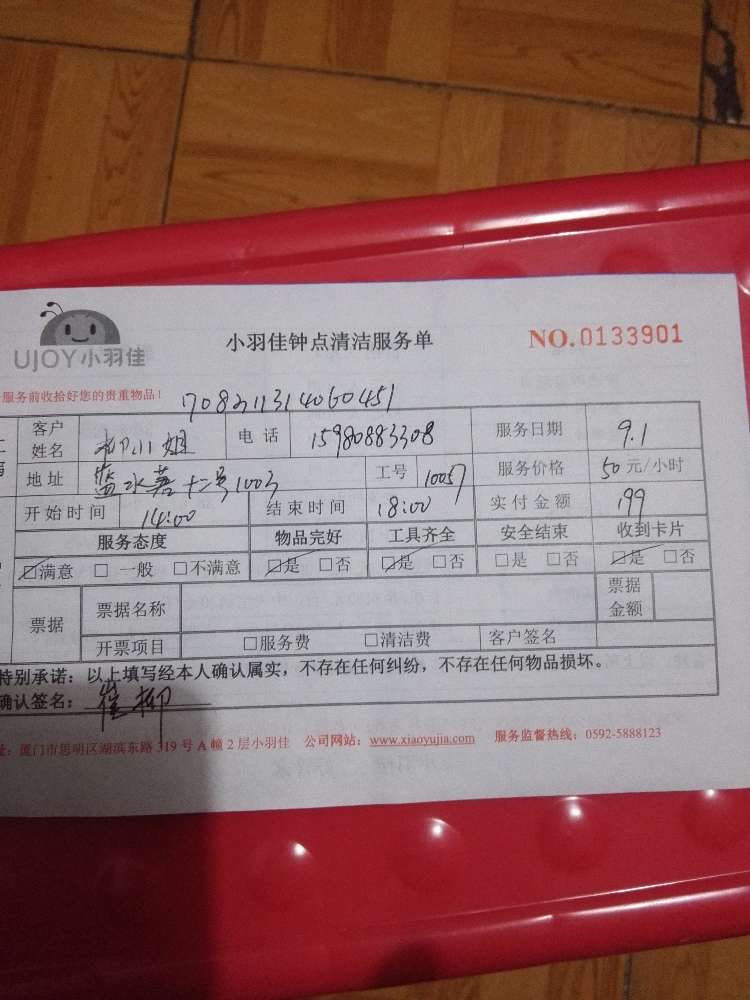 UJOY小羽佳
小羽佳钟点清洁服务单
NO.0133901
服务前收拾好您的贵重物品！
客户姓名 柳小姐 电话 15980883308 服务日期 9.1
地址 蓝水 十二号1003 工号 10057 服务价格 50元/小时
开始时间 14:00 结束时间 18:00 实付金额 199
服务态度 物品完好 工具齐全 安全结束 收到卡片
☑满意 □一般 □不满意 ☑是 □否 ☑是 □否 □是 □否 ☑是 □否
票据 票据名称 票据金额
开票项目 □服务费 □清洁费 客户签名
特别承诺：以上填写经本人确认属实，不存在任何纠纷，不存在任何物品损坏。
确认签名：崔柳
址：厦门市思明区湖滨东路319号A幢2层小羽佳 公司网站：www.xiaoyujia.com 服务监督热线：0592-5888123